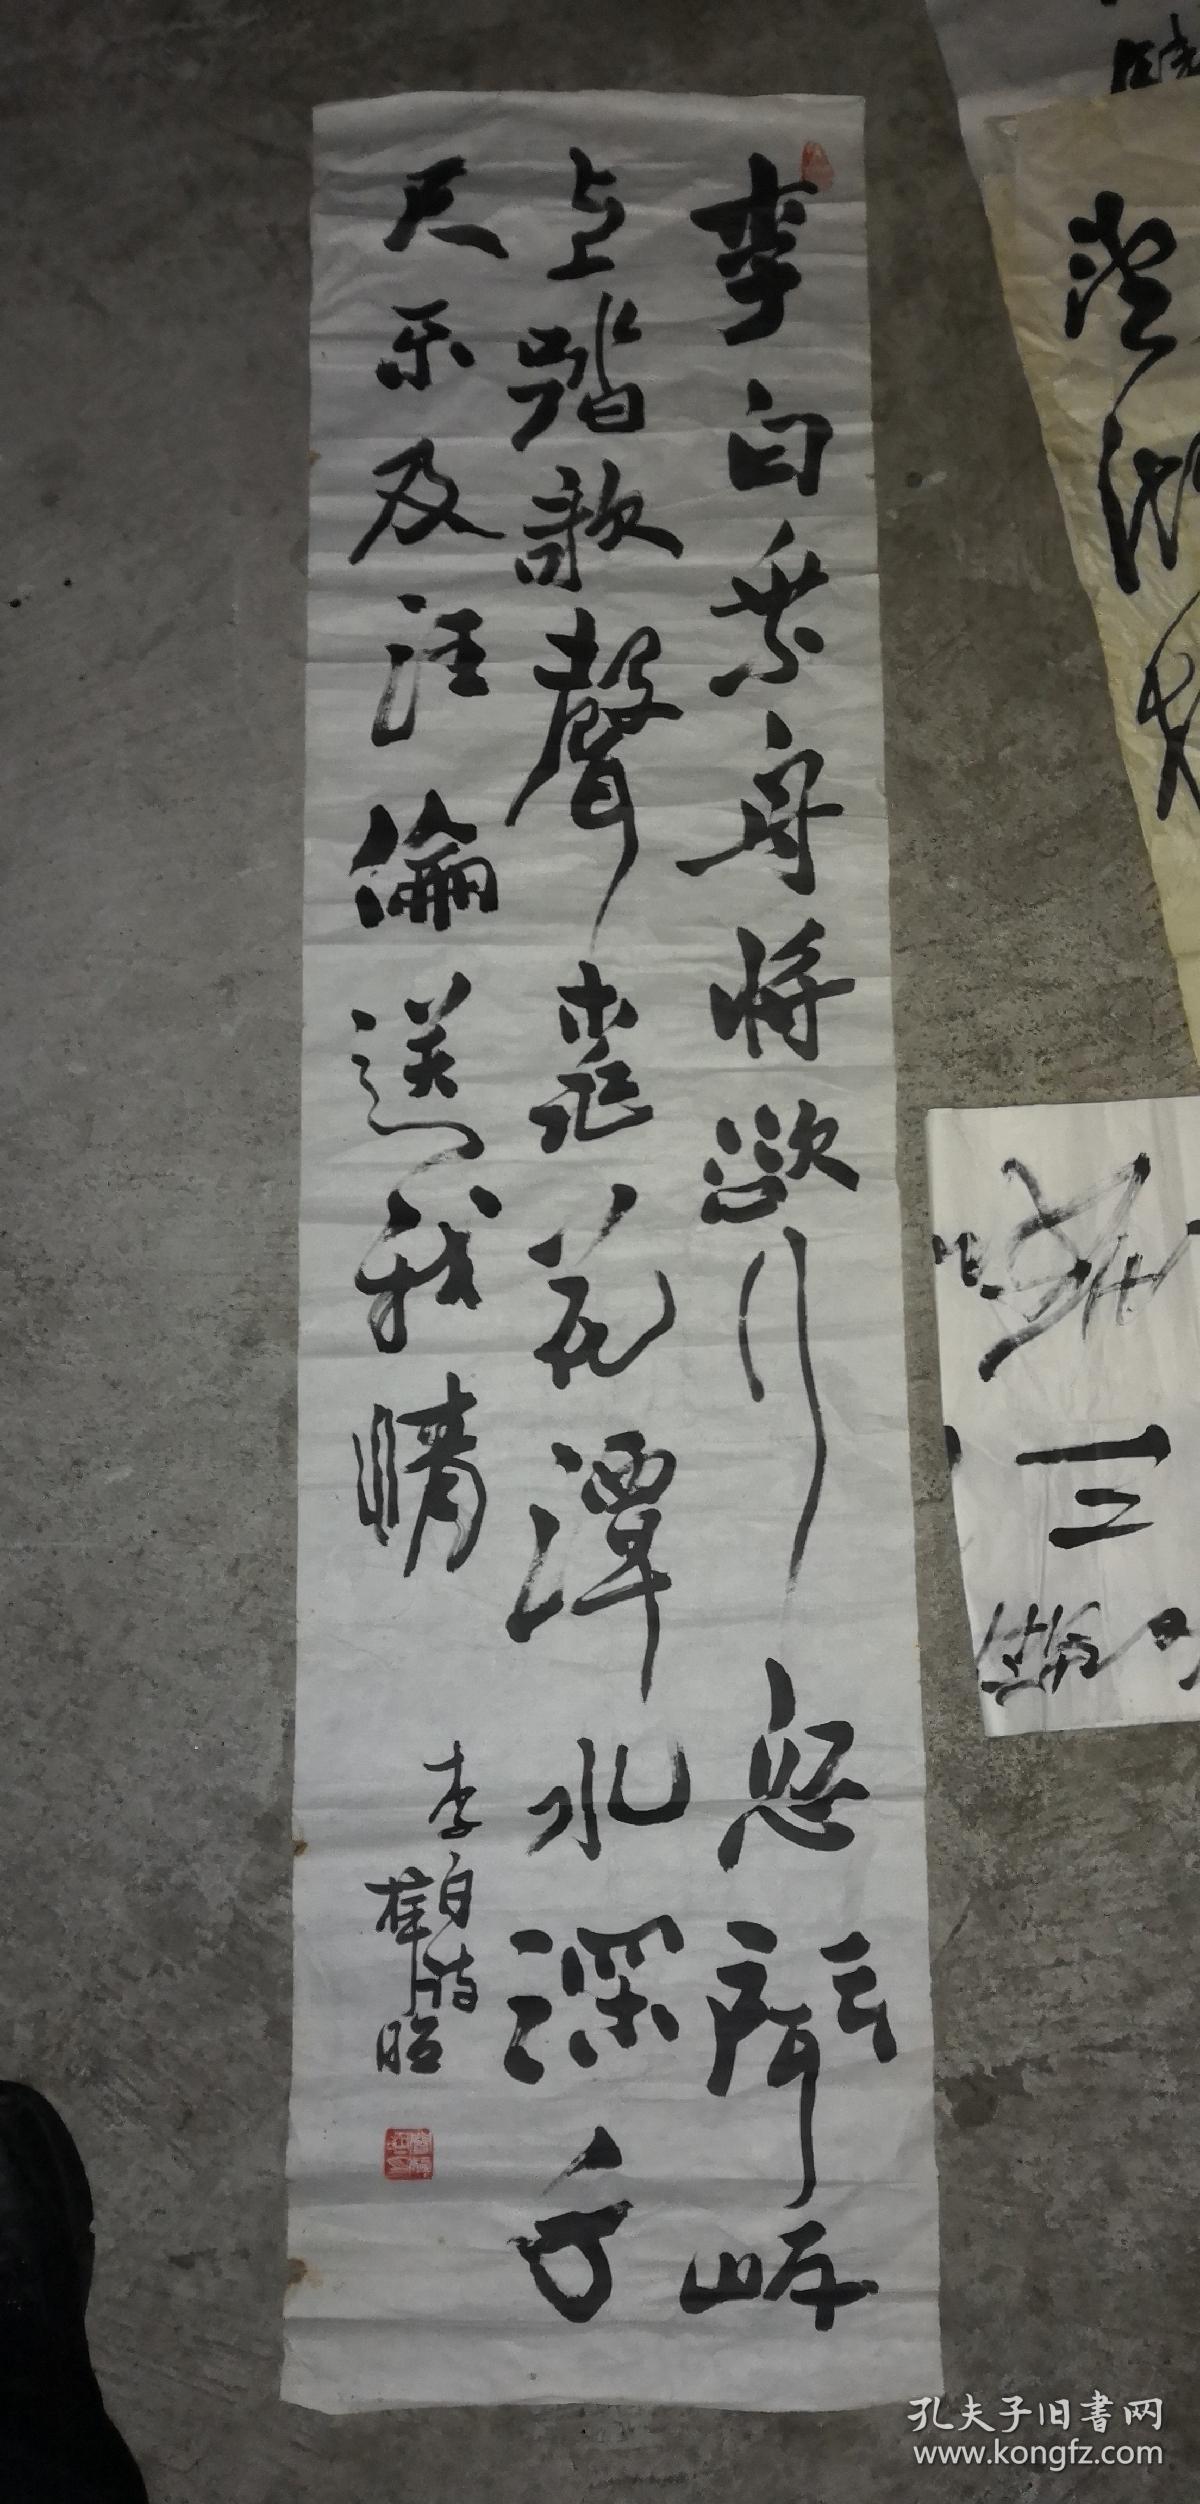 李白乘舟將欲行忽聞岸
上踏歌聲桃花潭水深千
尺不及汪倫送我情
李白詩
三
孔夫子旧書网
www.kongfz.com